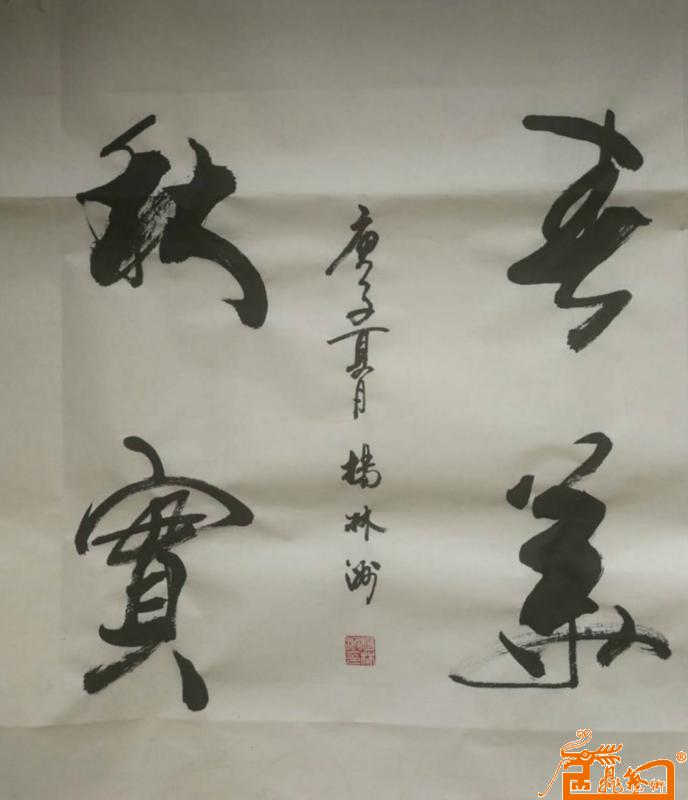 春華
秋實
庚子夏月 楊林洲